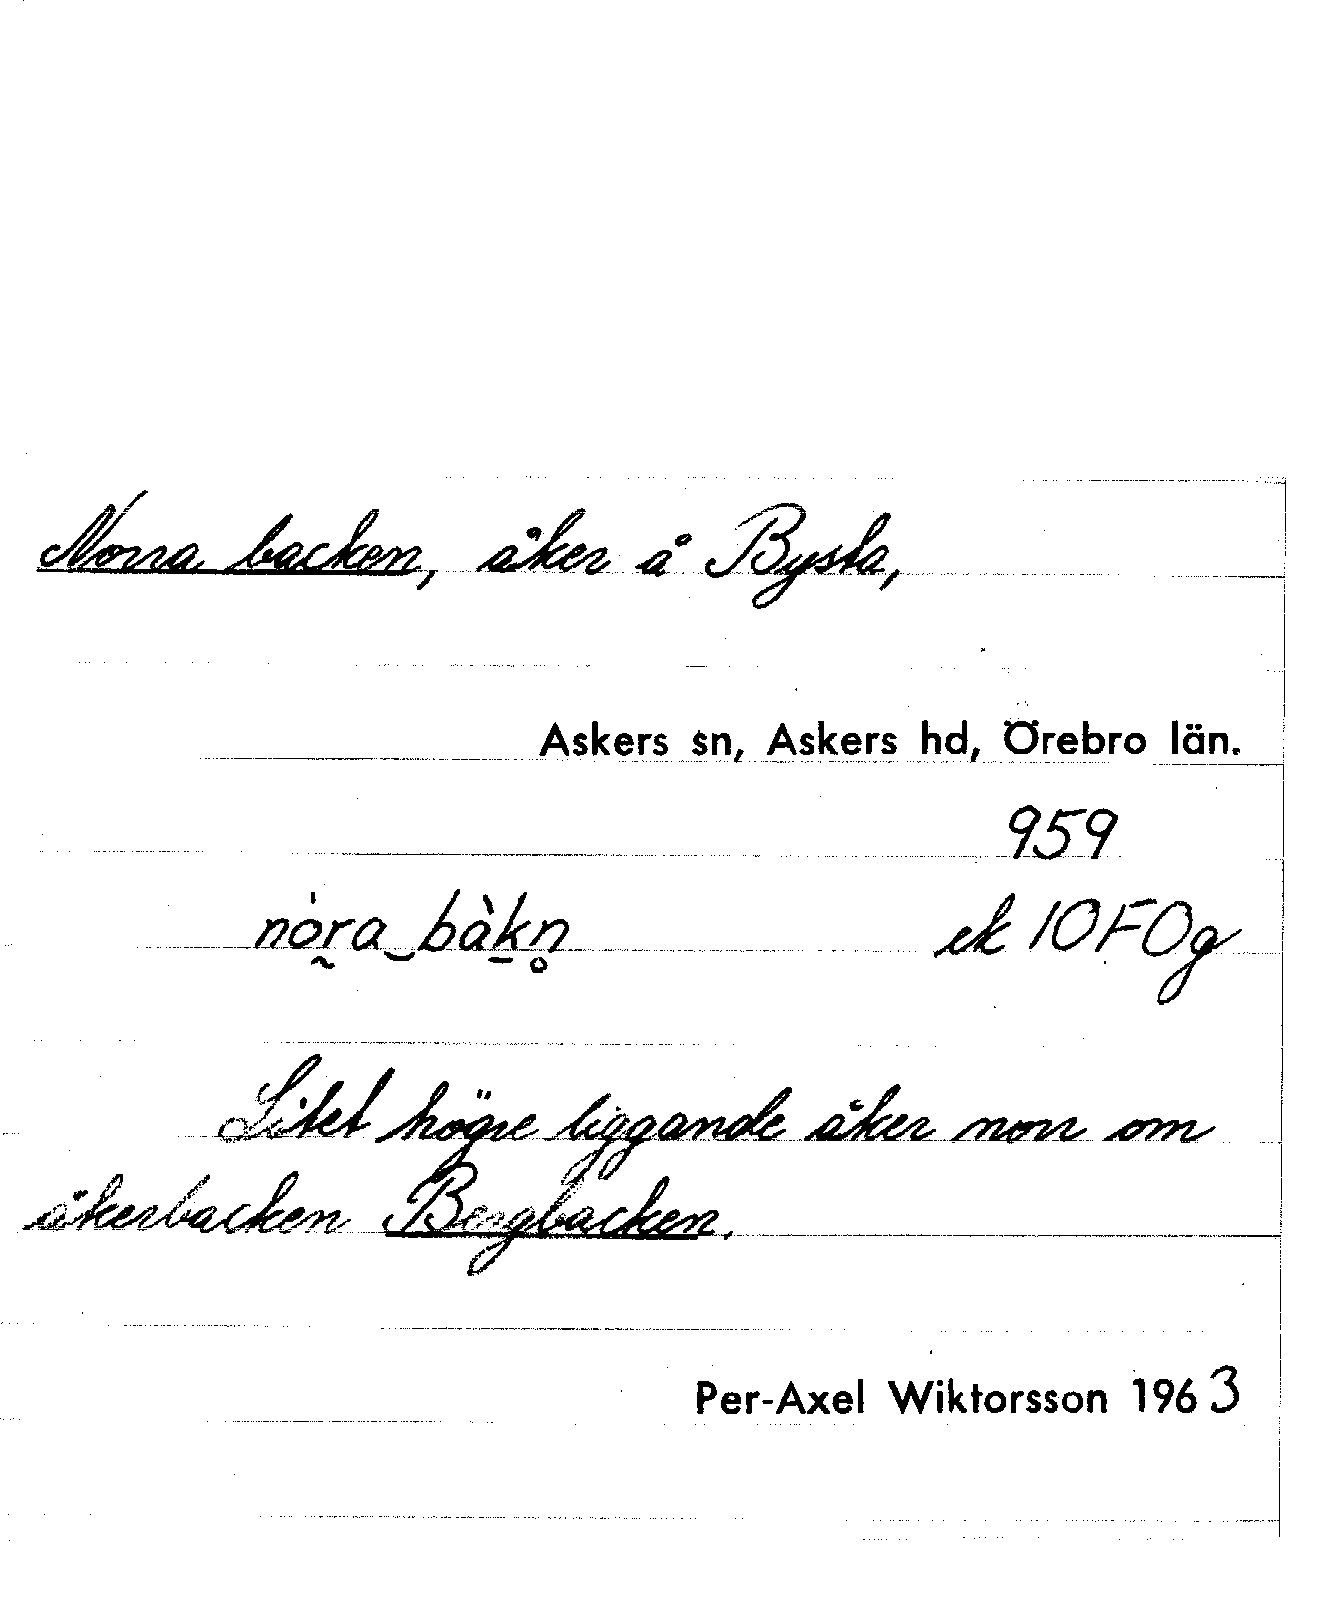 Norra backen, åker å Bysta,
Askers sn, Askers hd, Örebro län.
959
nòra‿bàkn̥ ek 10F0g
Litet högre liggande åker norr om
åkerbacken Bergbacken.
Per-Axel Wiktorsson 1963